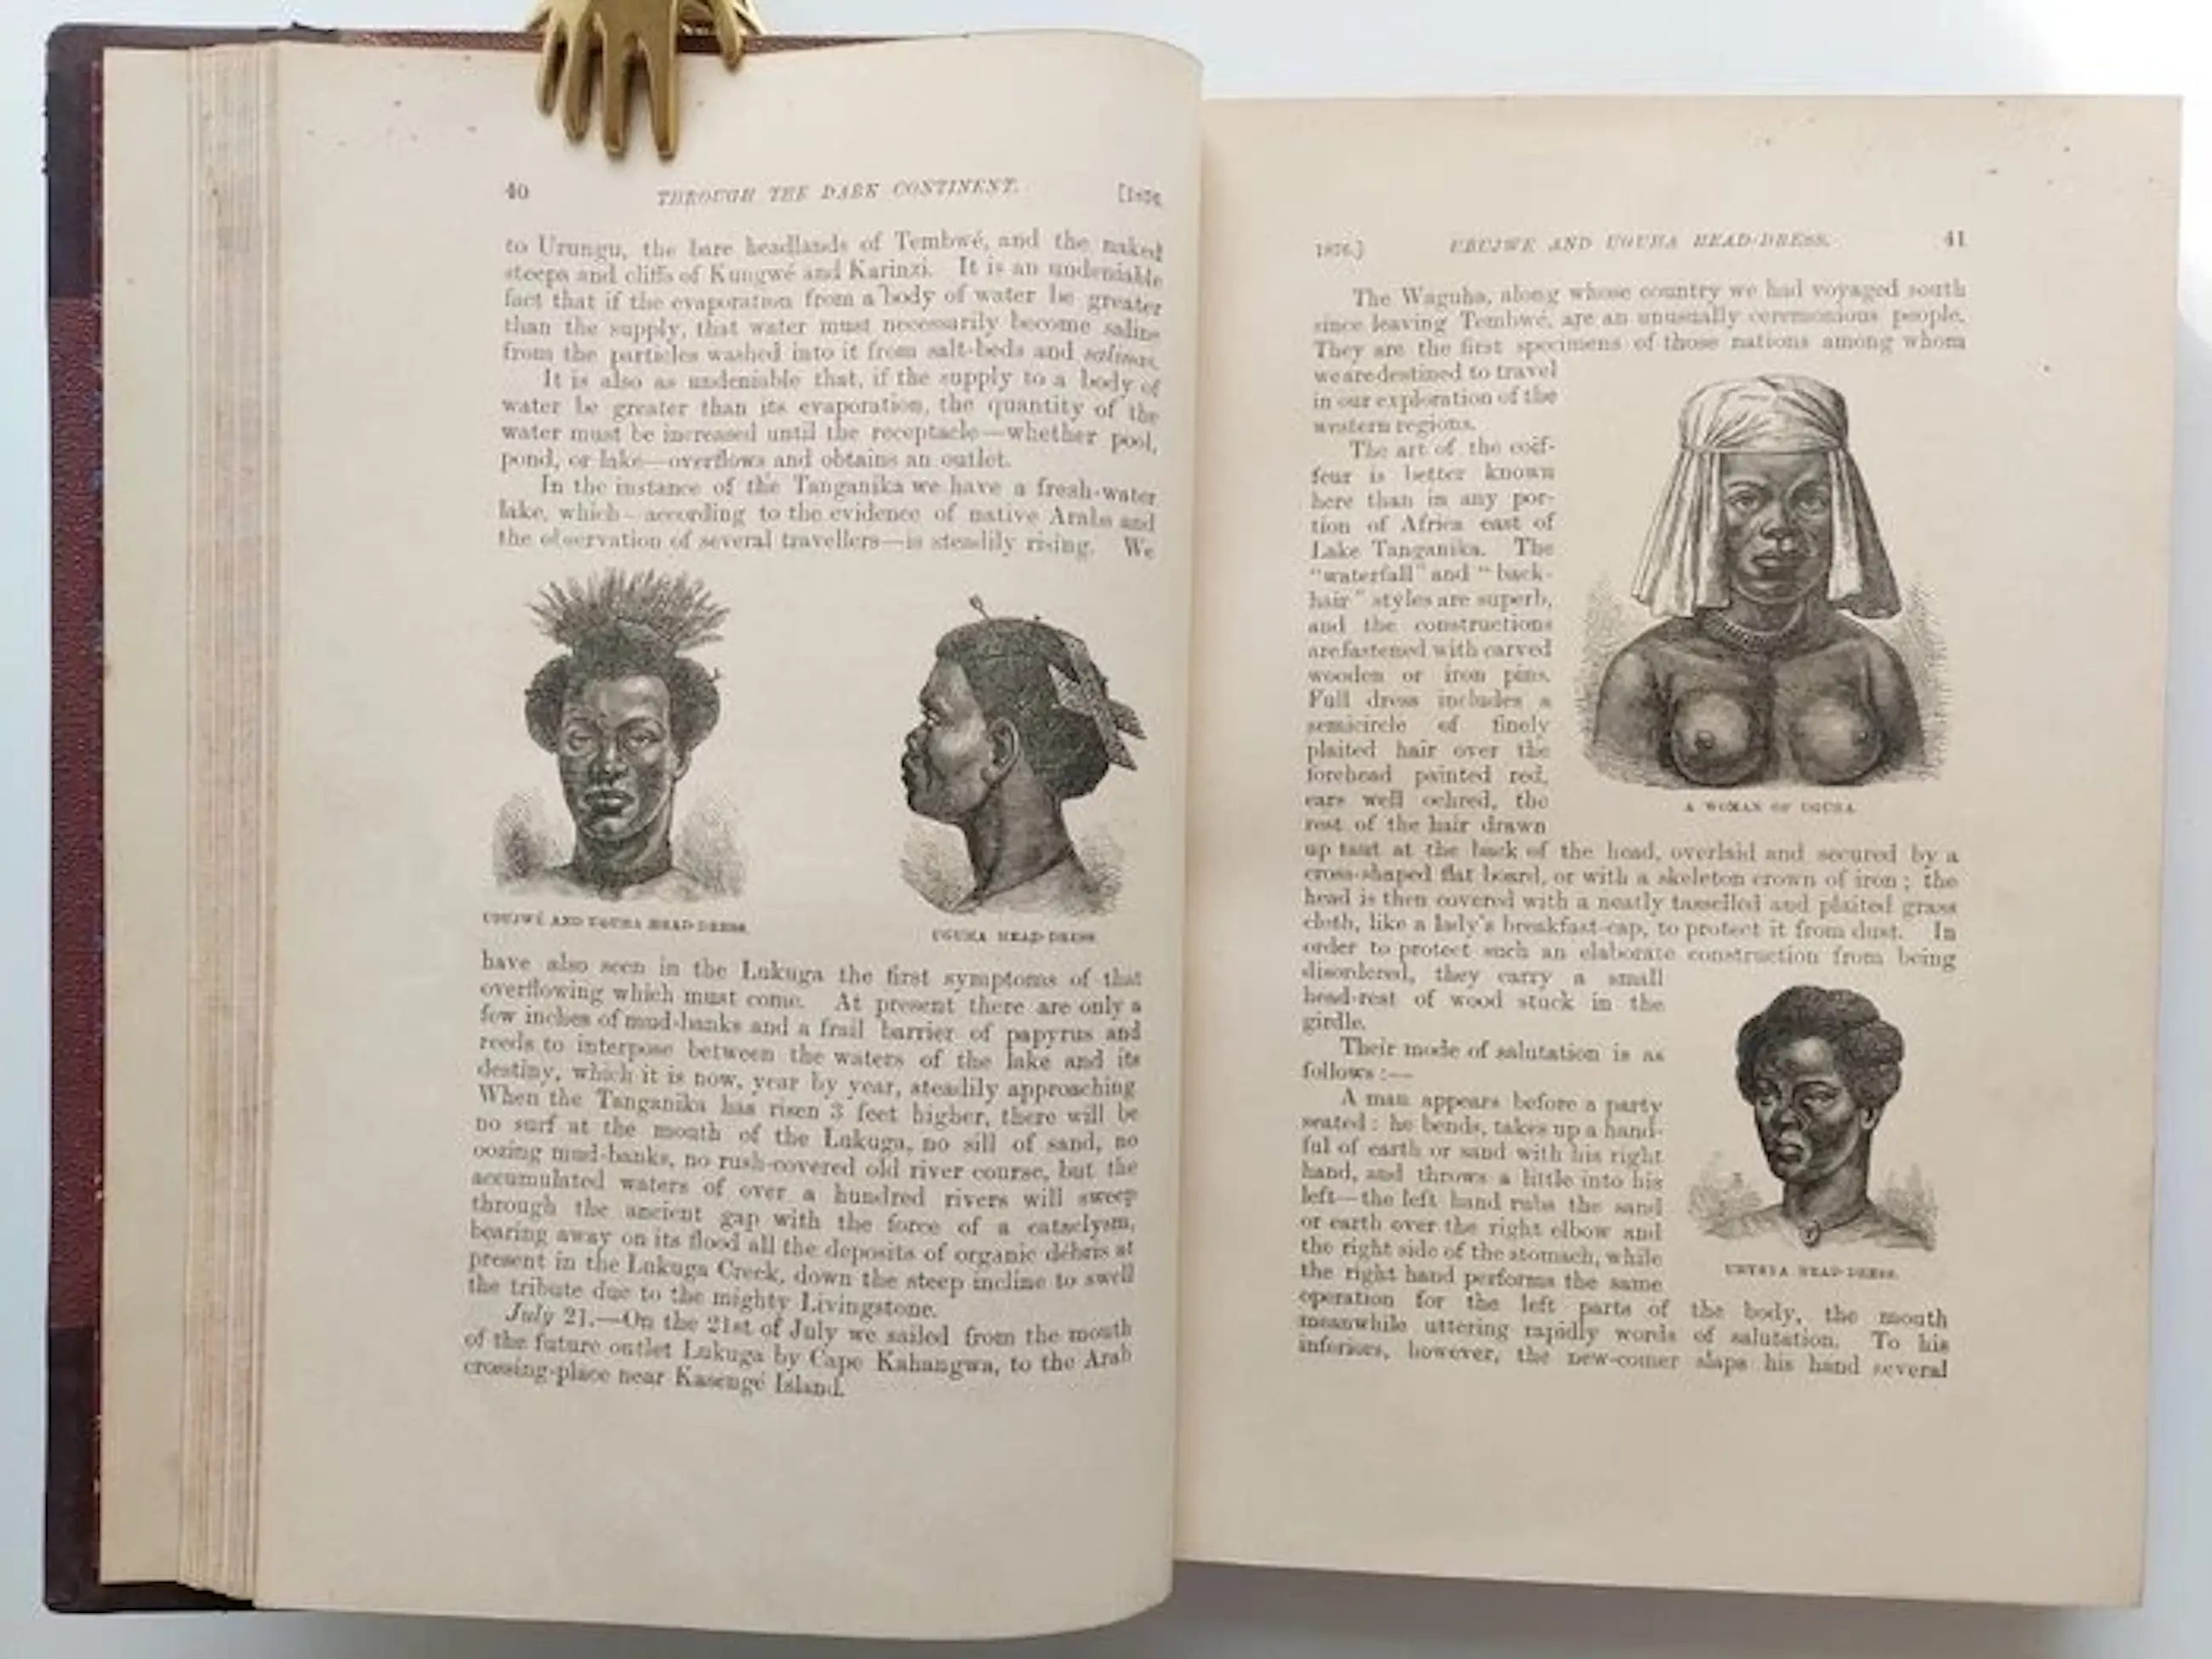 40
THROUGH THE DARK CONTINENT.
[1876.
to Urungu, the bare headlands of Tembwé, and the naked
steeps and cliffs of Kungwé and Karinzi. It is an undeniable
fact that if the evaporation from a body of water be greater
than the supply, that water must necessarily become saline
from the particles washed into it from salt-beds and salinas.
It is also as undeniable that, if the supply to a body of
water be greater than its evaporation, the quantity of the
water must be increased until the receptacle—whether pool,
pond, or lake—overflows and obtains an outlet.
In the instance of the Tanganika we have a fresh-water
lake, which—according to the evidence of native Arabs and
the observation of several travellers—is steadily rising. We
UBUJWÉ AND UGUHA HEAD-DRESS.
UGUHA HEAD-DRESS.
have also seen in the Lukuga the first symptoms of that
overflowing which must come. At present there are only a
few inches of mud-banks and a frail barrier of papyrus and
reeds to interpose between the waters of the lake and its
destiny, which it is now, year by year, steadily approaching
When the Tanganika has risen 3 feet higher, there will be
no surf at the mouth of the Lukuga, no sill of sand, no
oozing mud-banks, no rush-covered old river course, but the
accumulated waters of over a hundred rivers will sweep
through the ancient gap with the force of a cataclysm,
bearing away on its flood all the deposits of organic débris at
present in the Lukuga Creek, down the steep incline to swell
the tribute due to the mighty Livingstone.
July 21.—On the 21st of July we sailed from the mouth
of the future outlet Lukuga by Cape Kahangwa, to the Arab
crossing-place near Kasengé Island.
1876.]
UBUJWE AND UGUHA HEAD-DRESS.
41
The Waguha, along whose country we had voyaged south
since leaving Tembwé, are an unusually ceremonious people.
They are the first specimens of those nations among whom
we are destined to travel
in our exploration of the
western regions.
The art of the coif-
feur is better known
here than in any por-
tion of Africa east of
Lake Tanganika. The
"waterfall" and "back-
hair" styles are superb,
and the constructions
are fastened with carved
wooden or iron pins.
Full dress includes a
semicircle of finely
plaited hair over the
forehead painted red,
ears well ochred, the
rest of the hair drawn
up taut at the back of the head, overlaid and secured by a
cross-shaped flat board, or with a skeleton crown of iron; the
head is then covered with a neatly tasselled and plaited grass
cloth, like a lady's breakfast-cap, to protect it from dust. In
order to protect such an elaborate construction from being
disordered, they carry a small
head-rest of wood stuck in the
girdle.
Their mode of salutation is as
follows:—
A man appears before a party
seated: he bends, takes up a hand-
ful of earth or sand with his right
hand, and throws a little into his
left—the left hand rubs the sand
or earth over the right elbow and
the right side of the stomach, while
the right hand performs the same
operation for the left parts of the body, the mouth
meanwhile uttering rapidly words of salutation. To his
inferiors, however, the new-comer slaps his hand several
A WOMAN OF UGUHA.
HEAD-DRESS.